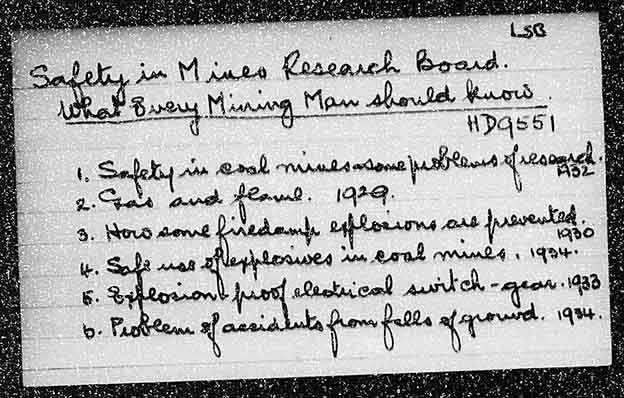 LSB
Safety in Mines Research Board.
What Every Mining Man should know.
HD9551
1. Safety in coal mines-some problems of research.
1932
2. Gas and flame. 1929.
3. How some firedamp explosions are prevented.
1930
4. Safe use of explosives in coal mines. 1934.
5. Explosion-proof electrical switch-gear. 1933
6. Problem of accidents from falls of ground. 1934.